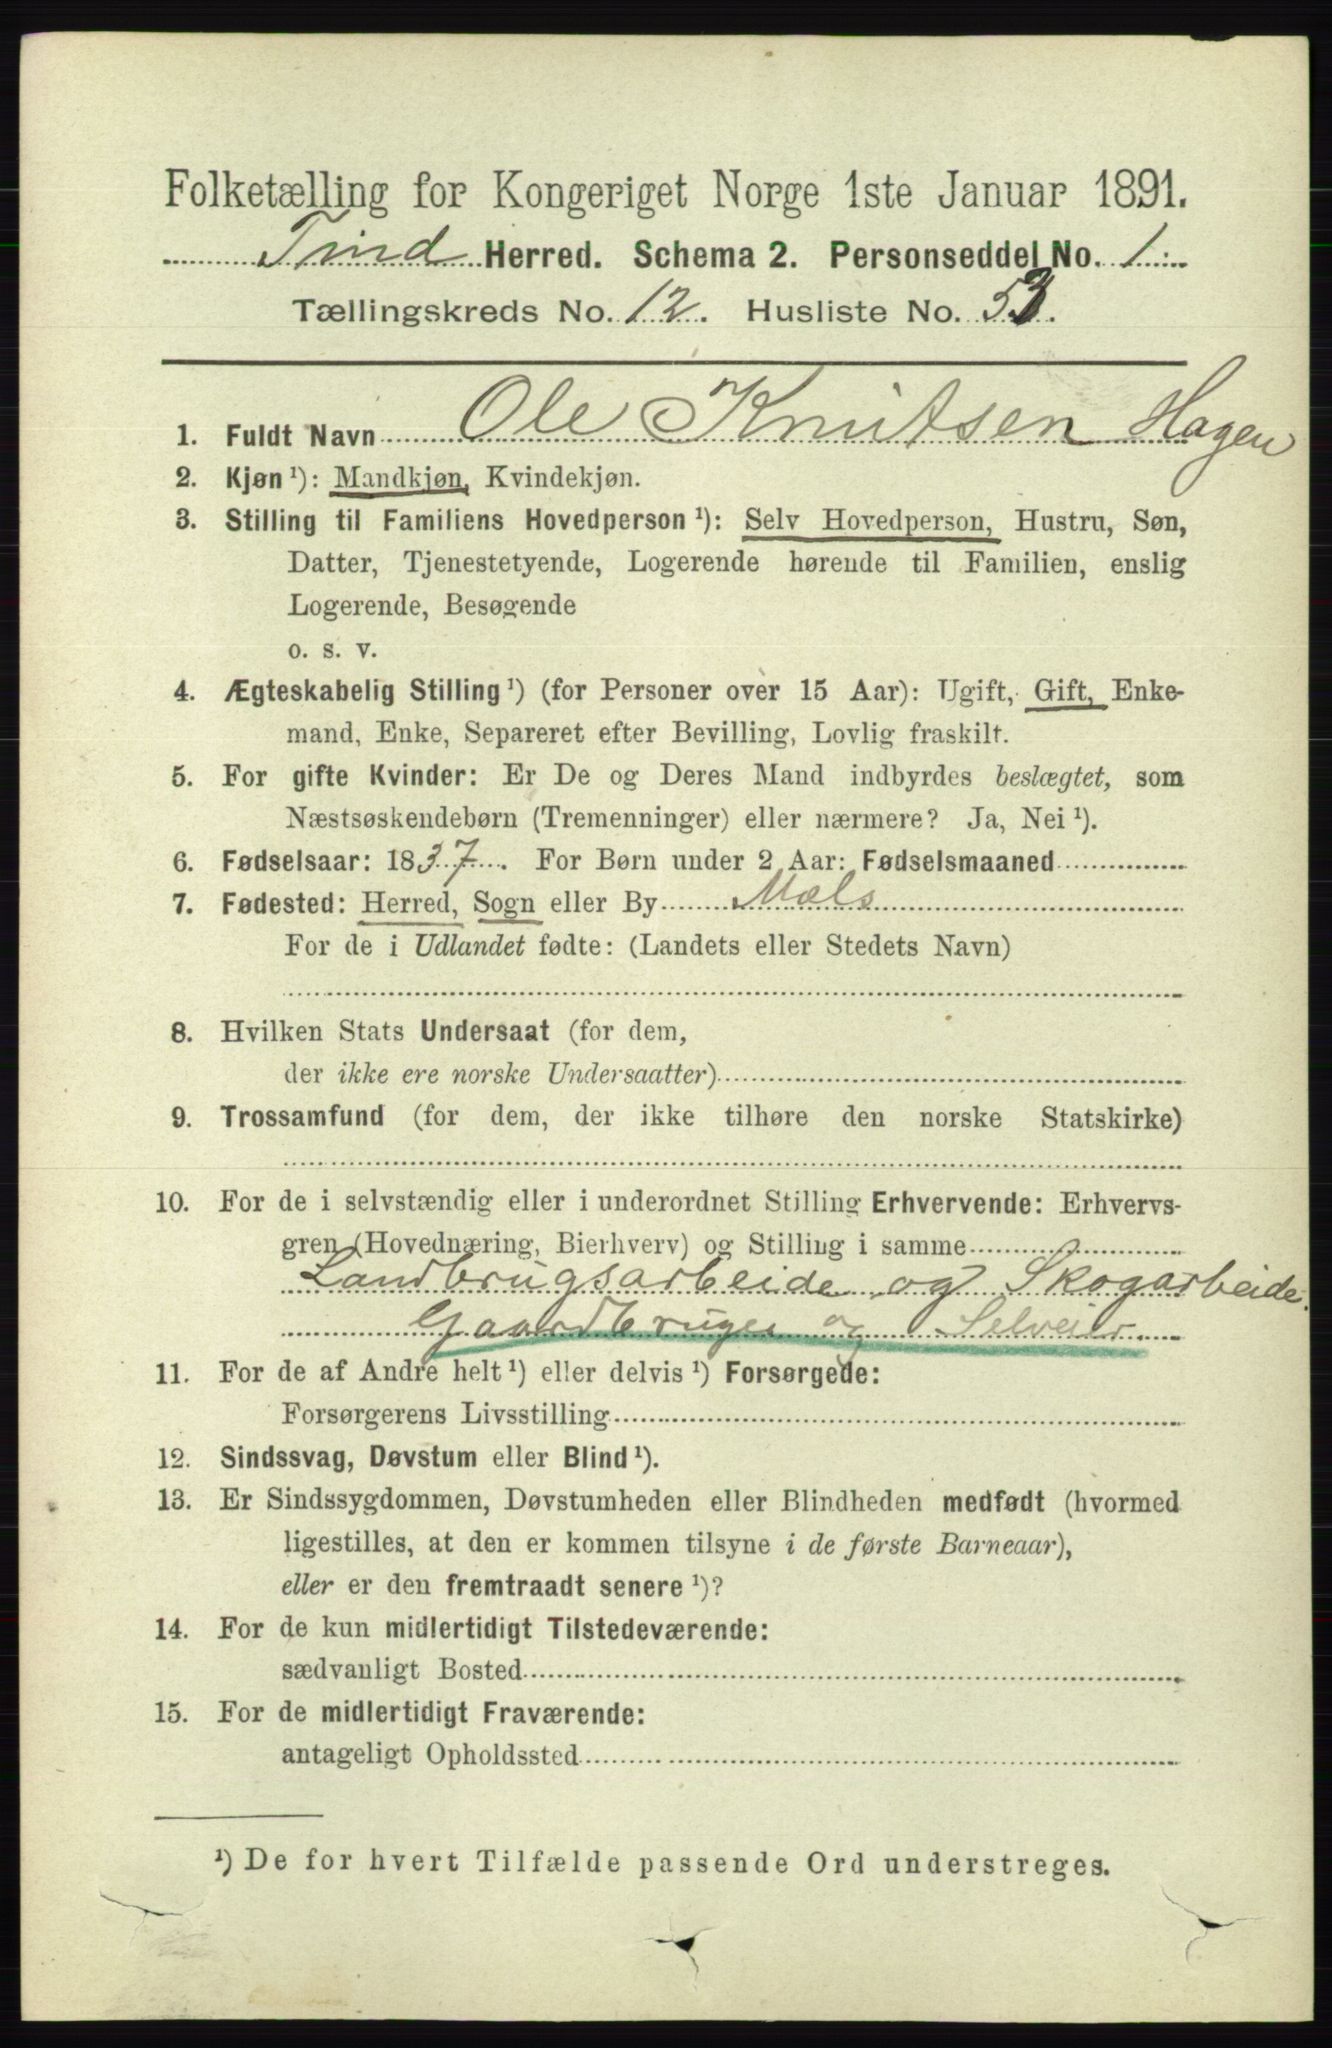 Folketælling for Kongeriget Norge 1ste Januar 1891.
Tind Herred. Schema 2. Personseddel No. 1.
Tællingskreds No. 12. Husliste No. 53.
1. Fuldt Navn Ole Knutsen Hagen
2. Kjøn ¹): Mandkjøn, Kvindekjøn.
3. Stilling til Familiens Hovedperson ¹): Selv Hovedperson, Hustru, Søn,
Datter, Tjenestetyende, Logerende hørende til Familien, enslig
Logerende, Besøgende
o. s. v.
4. Ægteskabelig Stilling ¹) (for Personer over 15 Aar): Ugift, Gift, Enke-
mand, Enke, Separeret efter Bevilling, Lovlig fraskilt.
5. For gifte Kvinder: Er De og Deres Mand indbyrdes beslægtet, som
Næstsøskendebørn (Tremenninger) eller nærmere? Ja, Nei ¹).
6. Fødselsaar: 1837. For Børn under 2 Aar: Fødselsmaaned
7. Fødested: Herred, Sogn eller By Mæls
For de i Udlandet fødte: (Landets eller Stedets Navn)
8. Hvilken Stats Undersaat (for dem,
der ikke ere norske Undersaatter)
9. Trossamfund (for dem, der ikke tilhøre den norske Statskirke)
10. For de i selvstændig eller i underordnet Stilling Erhvervende: Erhvervs-
gren (Hovednæring, Bierhverv) og Stilling i samme
Landbrugsarbeide og Skogarbeide.
Gaardbruger og Selveier.
11. For de af Andre helt ¹) eller delvis ¹) Forsørgede:
Forsørgerens Livsstilling
12. Sindssvag, Døvstum eller Blind ¹).
13. Er Sindssygdommen, Døvstumheden eller Blindheden medfødt (hvormed
ligestilles, at den er kommen tilsyne i de første Barneaar),
eller er den fremtraadt senere ¹)?
14. For de kun midlertidigt Tilstedeværende:
sædvanligt Bosted
15. For de midlertidigt Fraværende:
antageligt Opholdssted
¹) De for hvert Tilfælde passende Ord understreges.